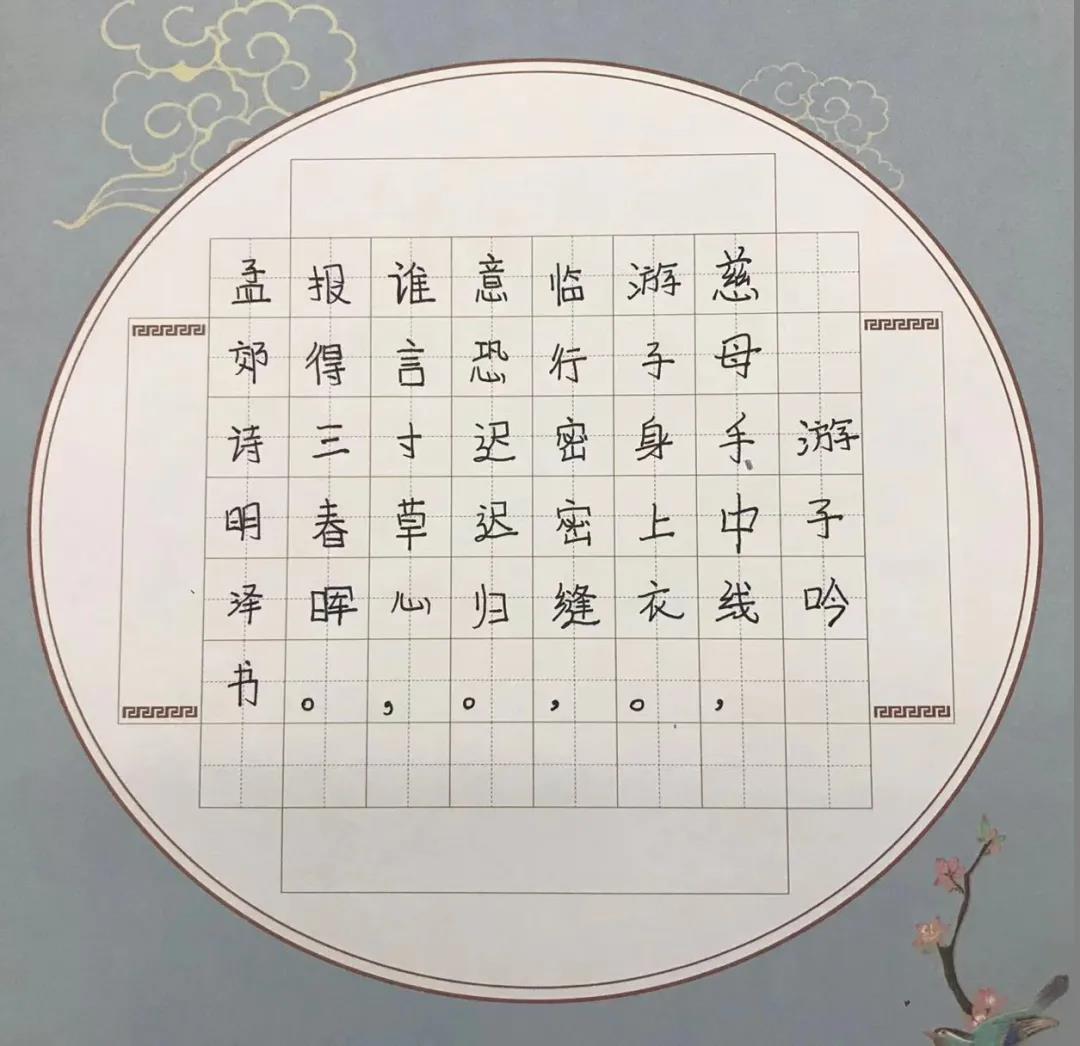 游子吟
慈母手中线，
游子身上衣。
临行密密缝，
意恐迟迟归。
谁言寸草心，
报得三春晖。
孟郊诗明泽书